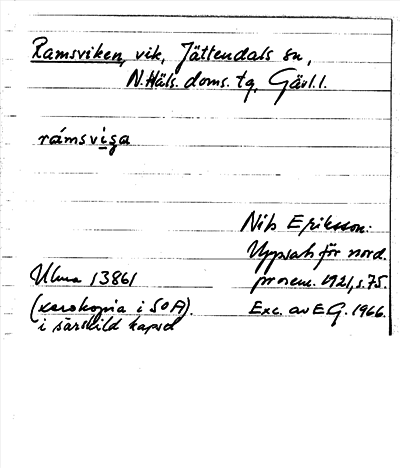 Ramsviken, vik, Jättendals sn,
N. Häls. doms. tg, Gävl. l.
rámsviga
Nils Eriksson:
Uppsats för nord.
prosem. 1921, s. 75.
Ulma 13861
(xerokopia i SOA).
Exc. av E G. 1966.
i särskild kapsel